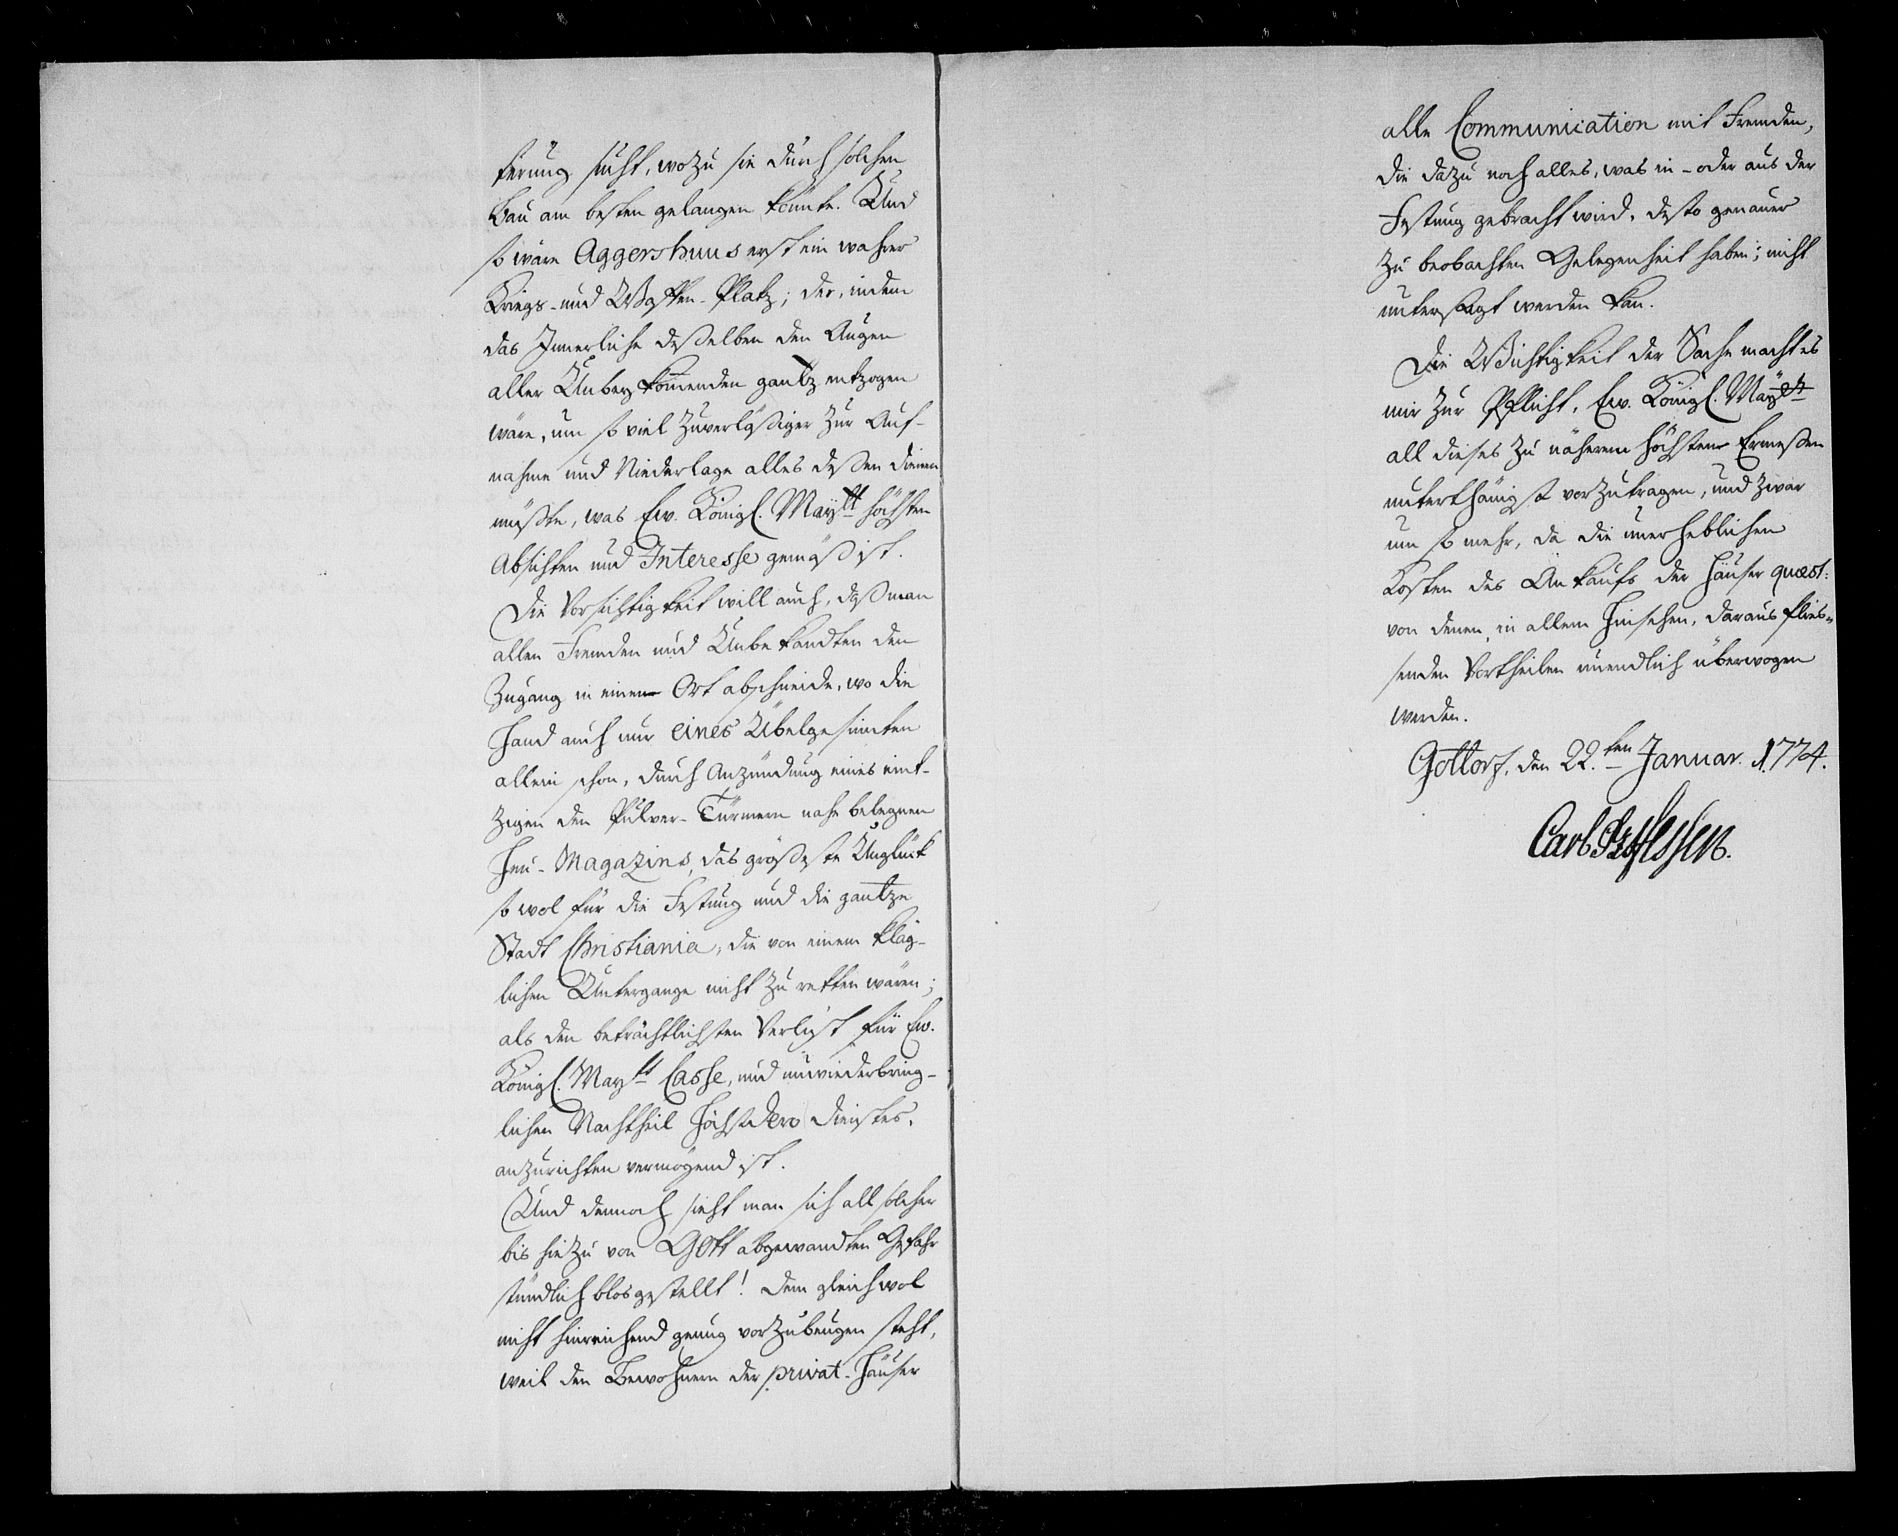 tirung sucht, wozu sie durch solchen
Bau am besten gelangen könte. Und
so wäre Aggershuus erst ein wahrer
Kriegs- und Waffen-Platz; der, indem
das Innerliche deßelben den Augen
aller Unberufkomenden gantz entzogen
wäre, um so viel zuverläßiger zur Auf-
nahme und Niederlage alles deßen dienen
müste, was Ew. Königl. Maytt höchsten
Absichten und Interesse gemäß ist.
Die Vorsichtigkeit will auch, daß man
allen Fremden und Unbekandten den
Zugang in einem Ort abschneide, wo die
Hand auch nur eines Übelgesinten
allein schon, durch Anzündung eines eint-
zigen den Pulver-Türmern nahe belegnen
Heu-Magazins, das größeste Unglück
so wol für die Festung und die gantze
Stadt Christiania, die von einem kläg-
lichen Untergange nicht zu retten wären;
als den beträchtlichsten Verlust für Ew.
Königl. Maytt Casse, und unwiederbring-
lichen Nachtheil Höchstdero Dienstes,
anzurichten vermögend ist.
Und dennoch sieht man sich all solcher
bis hiezu von Gott abgewandten Gefahr
stündlich blosgestellt! dem gleichwol
nicht hinreichend genug vorzubeugen steht,
weil den Bewohnern der privat-Häuser
alle Communication mit Fremden,
die dazu noch alles, was in- oder aus der
Festung gebracht wird, desto genauer
zu beobachten Gelegenheit haben; nicht
untersagt werden kan.
Die Wichtigkeit der Sache macht es
mir zur Pflicht, Ew. Königl. Maytt
all dieses zu näherem höchsten Ermeßen
unterthänigst vorzutragen, und zwar
um so mehr, da die unerheblichen
Kosten des Ankaufs der Häuser quæst:
von denen, in allem Hinsehen, daraus flies-
senden Vortheilen unendlich überwogen
werden.
Gottorf, den 22.ten Januar. 1774.
Carl Pz Hessen.